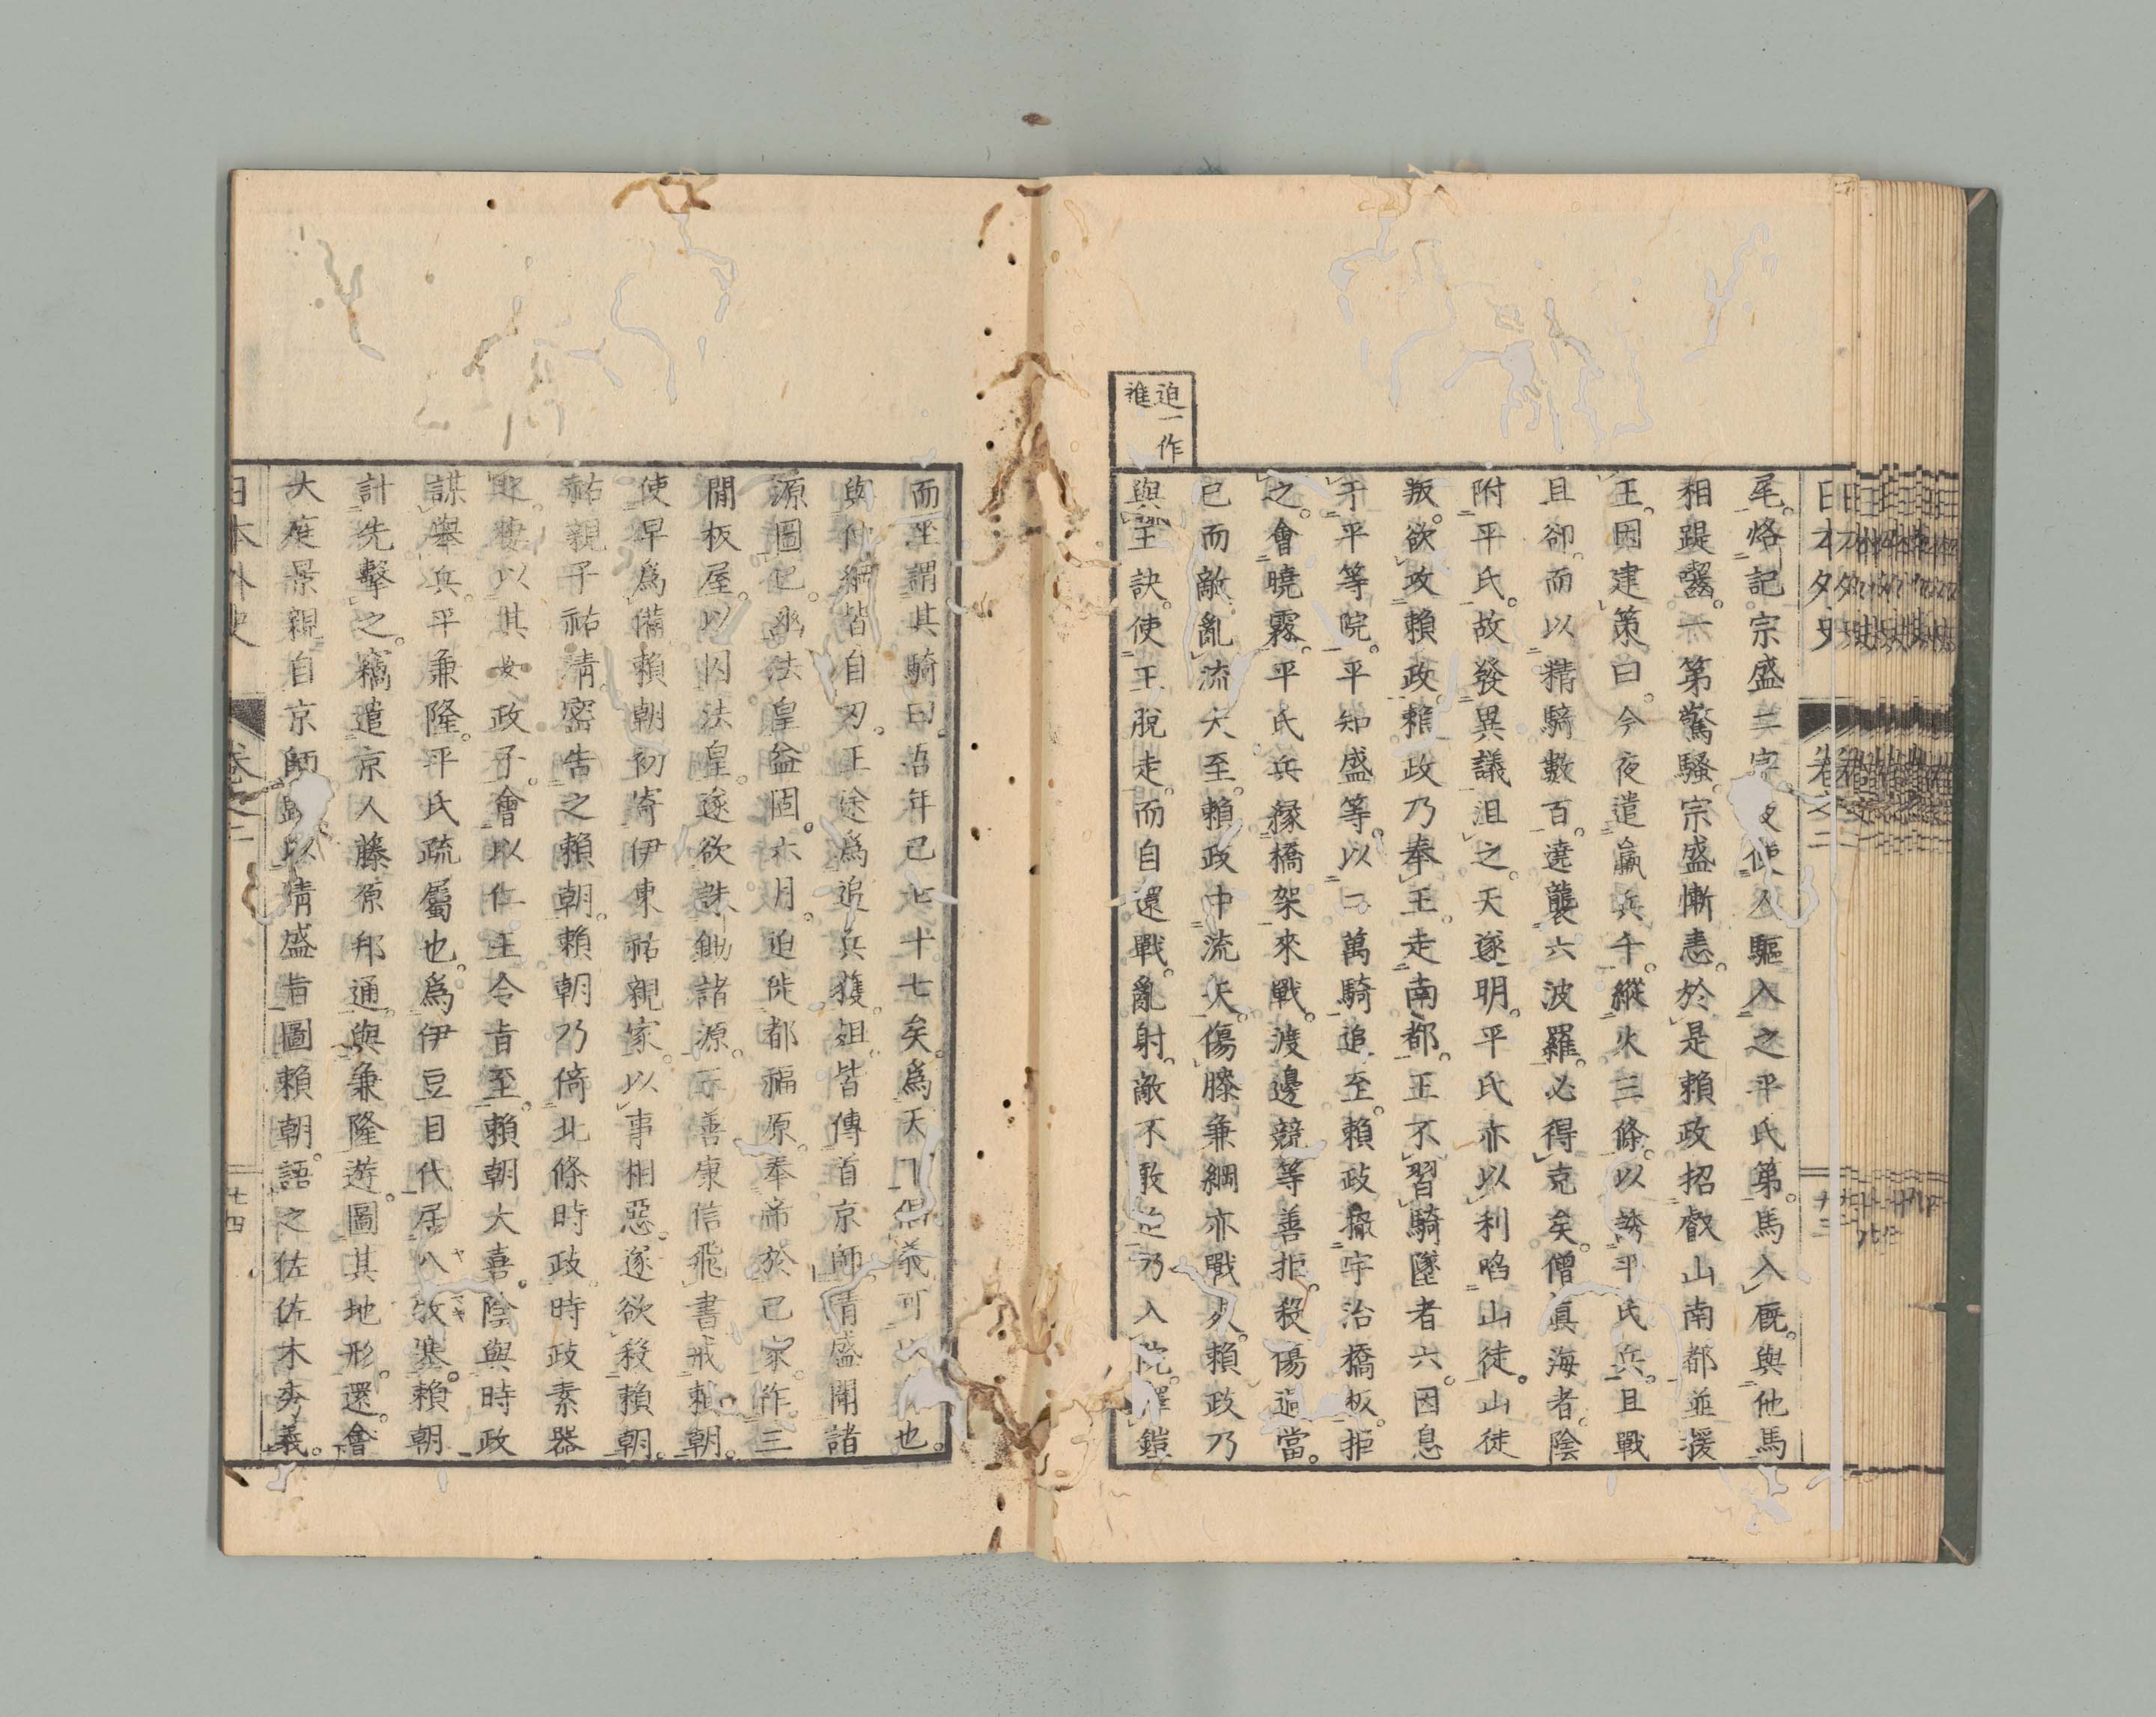 日本外史 卷之二 廿三
尾。烙記宗盛二字。夜使人驅入之平氏第。馬入廐。與他馬
相踶齧。一第驚騷。宗盛慚恚。於是賴政招叡山南都並援
王。因建策曰。今夜遣羸兵千。縱火三條。以誘平氏兵。且戰
且卻。而以精騎數百。遶襲六波羅。必得克矣。僧眞海者。陰
附平氏。故發異議沮之。天遂明。平氏亦以利啗山徒。山徒
叛。欲攻賴政。賴政乃奉王。走南都。王不習騎墜者六。因息
于平等院。平知盛等。以二萬騎追至。賴政撤宇治橋板。拒
之。會曉霧。平氏兵緣橋架來戰。渡邊競等善拒。殺傷過當。
已而敵亂流大至。賴政中流矢。傷膝。兼綱亦戰死。賴政乃
與王訣。使王脫走。而自還戰。亂射。敵不敢迫。乃入院。釋鎧
迫一作
進
而坐。謂其騎曰。吾年已七十七矣。爲天下倡義。可以 也。
與仲綱皆自刃。王途爲追兵獲。俎皆傳首京師。淸盛聞諸
源圖己。幽法皇益固。六月。迫徙都福原。奉帝於己家。作三
間板屋。以囚法皇。遂欲誅鋤諸源。三善康信飛書戒賴朝。
使早爲備。賴朝初寄伊東祐親家。以事相惡。遂欲殺賴朝。
祐親子祐淸。密告之賴朝。賴朝乃倚北條時政。時政素器
之。妻以其女政子。會以仁王令旨至。賴朝大喜。陰與時政
謀舉兵。平兼隆。平氏疏屬也。爲伊豆目代。居八牧塞。賴朝
計先擊之。竊遣京人藤原邦通。與兼隆遊。圖其地形。還。會
大庭景親自京師歸。以淸盛旨圖賴朝。語之佐佐木秀義。
日本外史 卷之二 廿四